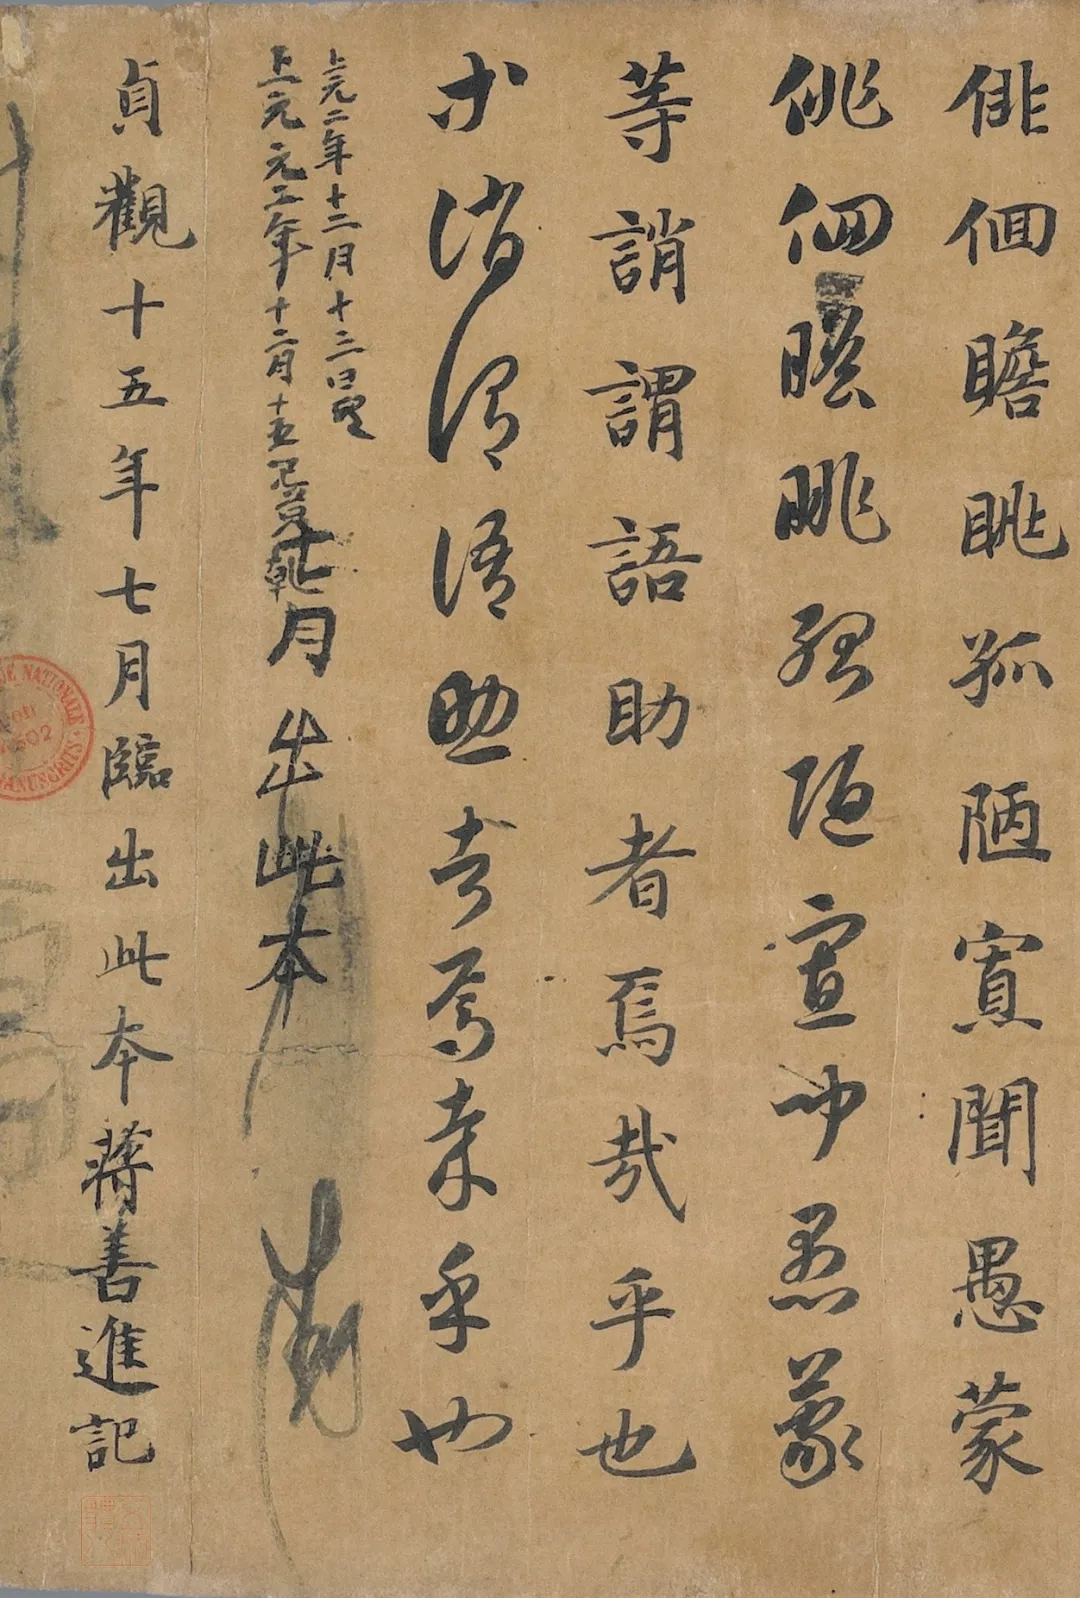 俳佪瞻眺孤陋寡聞愚蒙
俳佪瞻眺孤陋寡聞愚蒙
等誚謂語助者焉哉乎也
等誚謂語助者焉哉乎也
上元二年十二月十三日
上元元二年十二月十五
七月出此本
貞觀十五年七月臨出此本蔣善進記
NATIONALE
MANUSCRITS